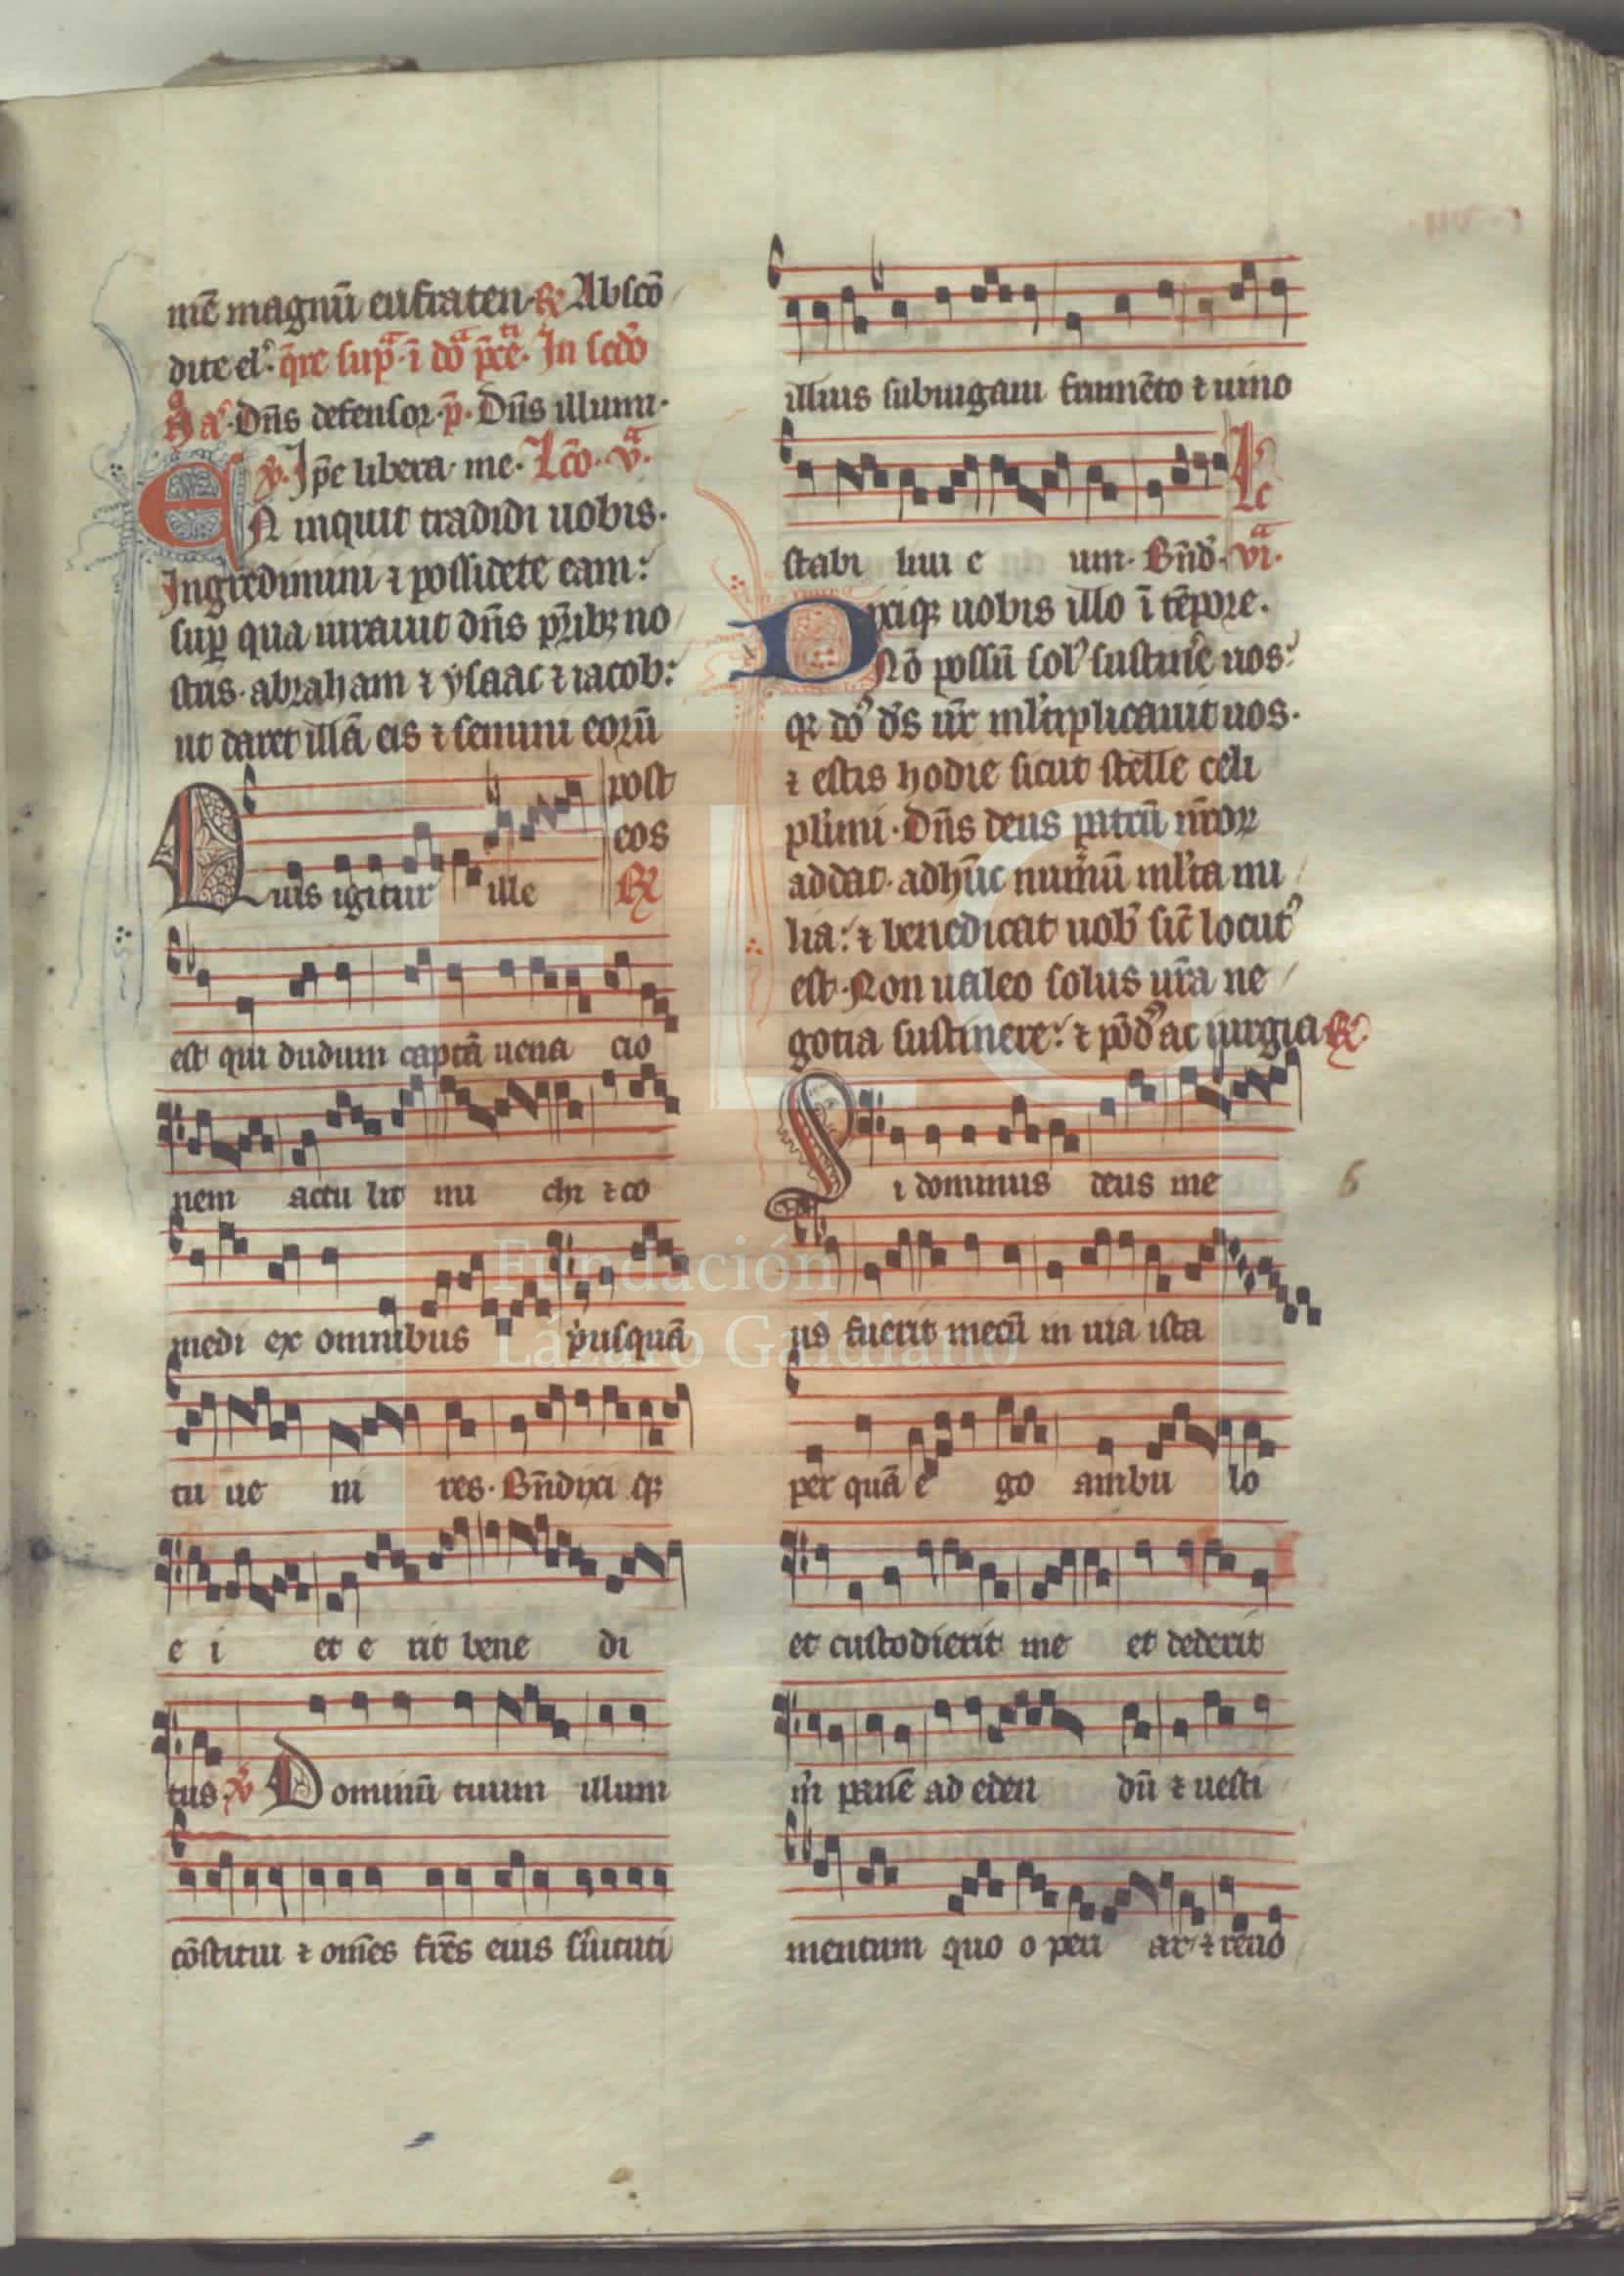 mē magnū eufraten. R Abscō
dite el'. q̄re sup̄ª. ī dōª p̄ceᵗⁱ. In scd̄o
Dn̄s defensor. p̄. Dn̄s illumi.
V̄. Ip̄e libera. me. Lc̄o. vª.
EN inquit tradidi uobis.
Ingredimini ⁊ possidete eam:
sup̄ qua iurauit dn̄s p̄ribꝫ no
stris. abraham ⁊ ysaac ⁊ iacob:
ut daret illā eis ⁊ semini eorū
post
eos
R
Quis igitur ille
est qui dudum captā uena cio
nem actu lit mi chi ⁊ co
medi ex omnibus p̄usquā
tu ue ni res. Bn̄dixi qꝫ
e i et e rit bene di
tus. V̄ Dominū tuum illum
cōstitui ⁊ om̄es fr̄es eius s̄uituti
illius subiugaui frumēto ⁊ uino
stabi liui e um. Bn̄d. Lc viª.
Dixiqꝫ uobis illo ī tēpore.
Nō possū sol' sustin̄e uos:
qꝛ dō d̄s ūr ml'tiplicauit uos.
⁊ estis hodie sicut stelle celi
pl'imi. Dn̄s deus patrū nr̄oꝝ
addat. adhūc num̄ū ml'ta mi
lia: ⁊ benedicat uob' sic̄ locut'
est. Non ualeo solus ur̄a ne
gotia sustinere: ⁊ pōd' ac iurgia R
Si dominus deus me
us fuerit mecū in uia ista
6
per quā e go ambu lo
et custodierit me et dederit
m̄ panē ad eden dū ⁊ uesti
mentum quo o peri ar ⁊ reuo
Fundación
Lázaro Galdiano